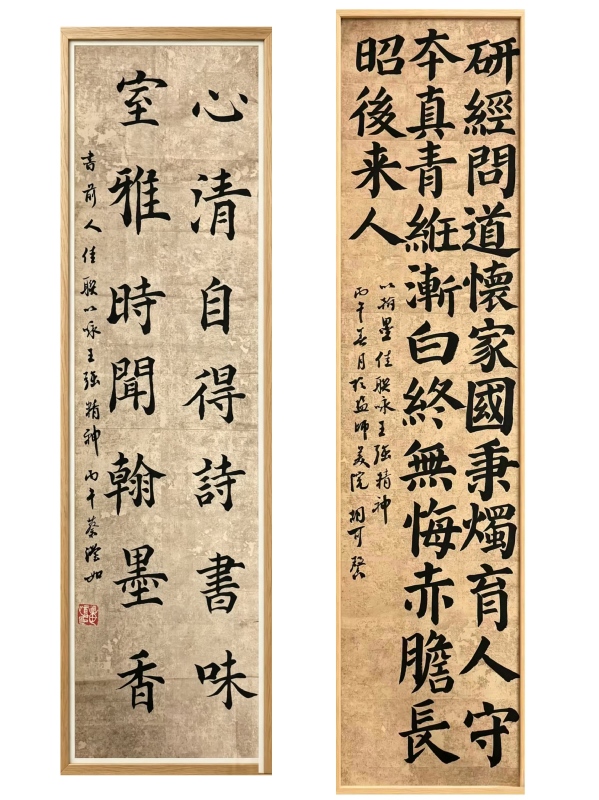 心清自得詩書味
室雅時聞翰墨香
書前人佳联以咏王强精神 丙午蔡如
研經問道懷家國秉燭育人守
夲真青維漸白終無悔赤膽長
昭後来人
以翰墨佳联咏王强精神
丙午春月於盐师美院 胡可馨